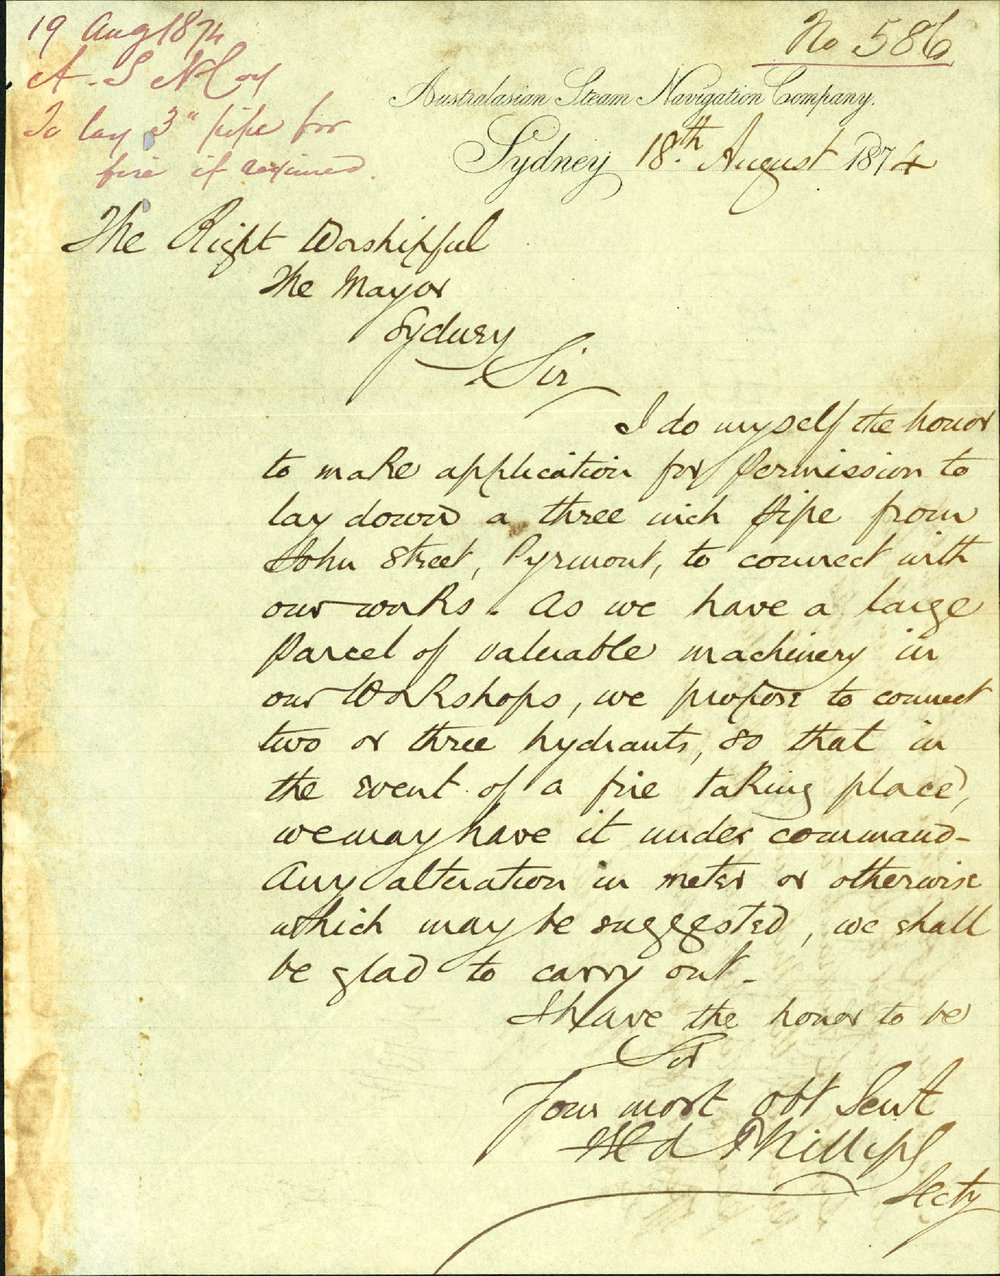 19 Aug 1874
A. S N Coy
To lay 3" pipe for
fire if required.
No 586
Australasian Steam Navigation Company.
Sydney 18th August 1874
The Right Worshipful
The Mayor
Sydney
Sir
I do myself the honor
to make application for permission to
lay down a three inch pipe from
John Street, Pyrmont, to connect with
our works. As we have a large
parcel of valuable machinery in
our Workshops, we propose to connect
two or three hydrants, so that in
the event of a fire taking place,
we may have it under command-
Any alteration in meter or otherwise
which may be suggested, we shall
be glad to carry out-
I have the honor to be
Sir
Your most obt Servt
Phillips
Secty